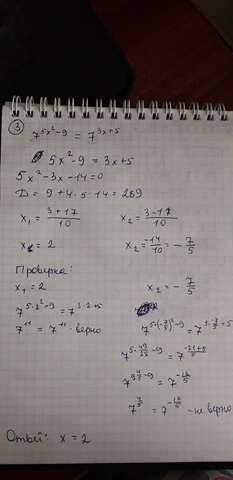 ③
7^(5x²-9) = 7^(3x+5)
5x²-9 = 3x+5
5x²-3x-14=0
D = 9+4·5·14 = 289
x₁ = (3+17)/10    x₂ = (3-17)/10
x₁ = 2    x₂ = -14/10 = -7/5
Проверка:
x₁ = 2    x₂ = -7/5
7^(5·2²-9) = 7^(3·2+5)
7¹¹ = 7¹¹ - верно
7^(5·(-7/5)²-9) = 7^(3·-7/5+5)
7^(5·49/25-9) = 7^(-21+5/5)
- не верно
Ответ: x = 2